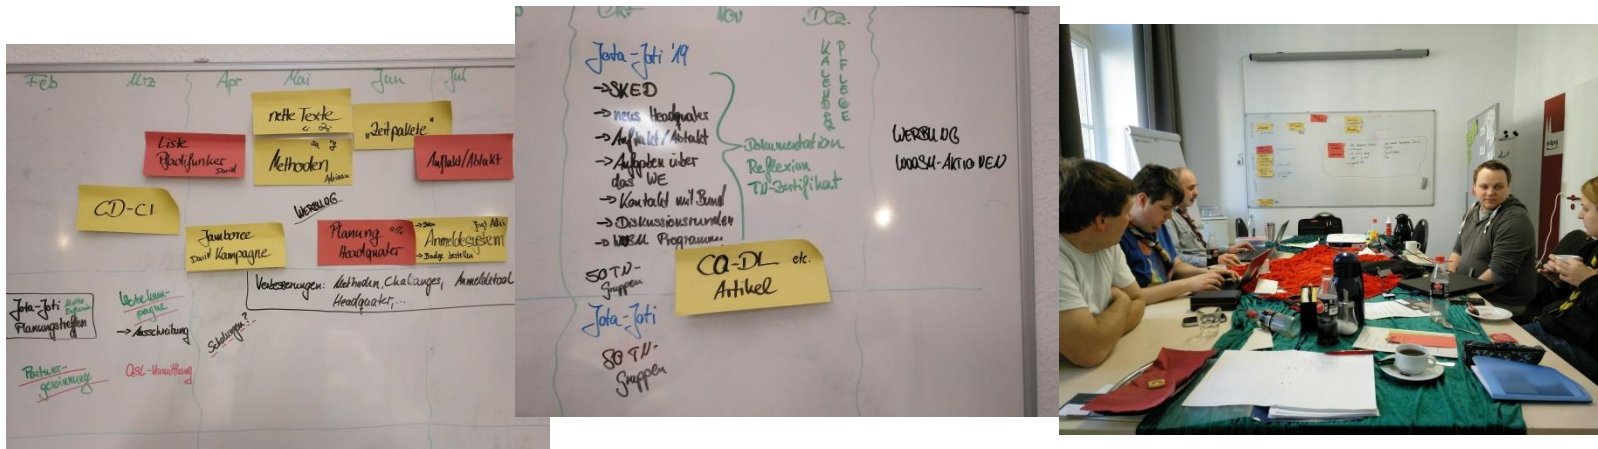 Feb Mrz Apr Mai Jun Jul
nette Texte
"Zeitpakete"
Liste
Pfadifunker
David
Methoden
Adrian
Auftakt/Abtakt
CD-CI
WERBUNG
Jamboree
David Kampagne
Planung
Headquater
Anmeldesystem
→ Badge bestellen
Verbesserungen: Methoden, Challanges, Anmeldetool
Headquater,...
Jota-Joti
Planungstreffen
Werbekam-
pagne
→ Ausschreibung
Schulungen?
Partner-
gewinnung
QSL-Vermittlung
Okt Nov Dez.
Jota-Joti '19
→ SKED
→ neues Headquater
→ Auftakt/Abtakt
→ Aufgaben über
das WE
→ Kontakt mit Bund
→ Diskussionsrunden
→ WOSM Programm
50 TN-
Gruppen
Jota-Joti
50 TN-
Gruppen
KALENDER
PFLEGE
Dokumentation
Reflexion
TN-Zertifikat
CQ-DL etc.
Artikel
WERBUNG
WOOSH-AKTIONEN